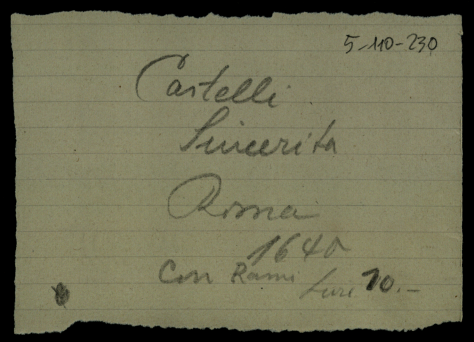 5-110-230
Castelli
Sincerita
Roma
1640
Con Rami Lire 10.-